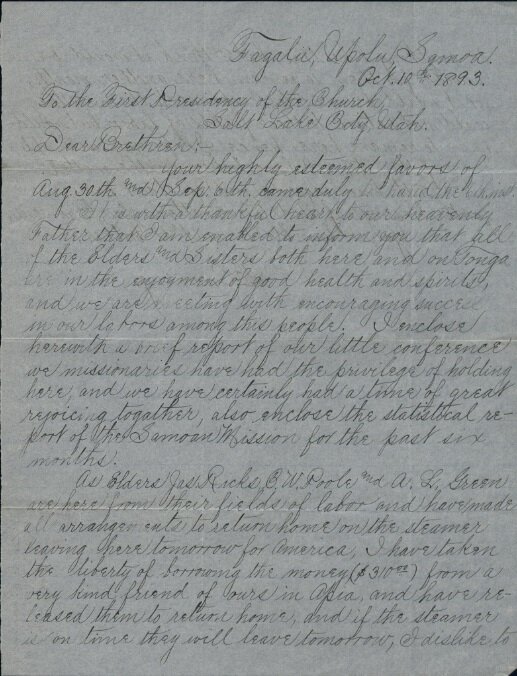 Fagalii, Upolu, Samoa.
Oct. 10th 1893.
To the First Presidency of the Church,
Salt Lake City, Utah.
Dear Brethren:-
Your highly esteemed favors of
Aug. 30th and Sep. 6th came duly to hand
It is with a thankful heart to our heavenly
Father that I am enabled to inform you that all
of the Elders and Sisters both here and on Tonga
are in the enjoyment of good health and spirits,
and we are meeting with encouraging success
in our labors among this people. I enclose
herewith a brief report of our little conference
we missionaries have had the privilege of holding
here, and we have certainly had a time of great
rejoicing togather, also enclose the statistical re-
port of the Samoan Mission for the past six
months.
As Elders Jas. Ricks, C. W. Poole and A. L. Green
are here from their fields of labor and have made
all arrangements to return home on the steamer
leaving here tomorrow for America, I have taken
the liberty of borrowing the money ($310.00) from a
very kind friend of ours in Apia, and have re-
leased them to return home, and if the steamer
is on time they will leave tomorrow, I dislike to